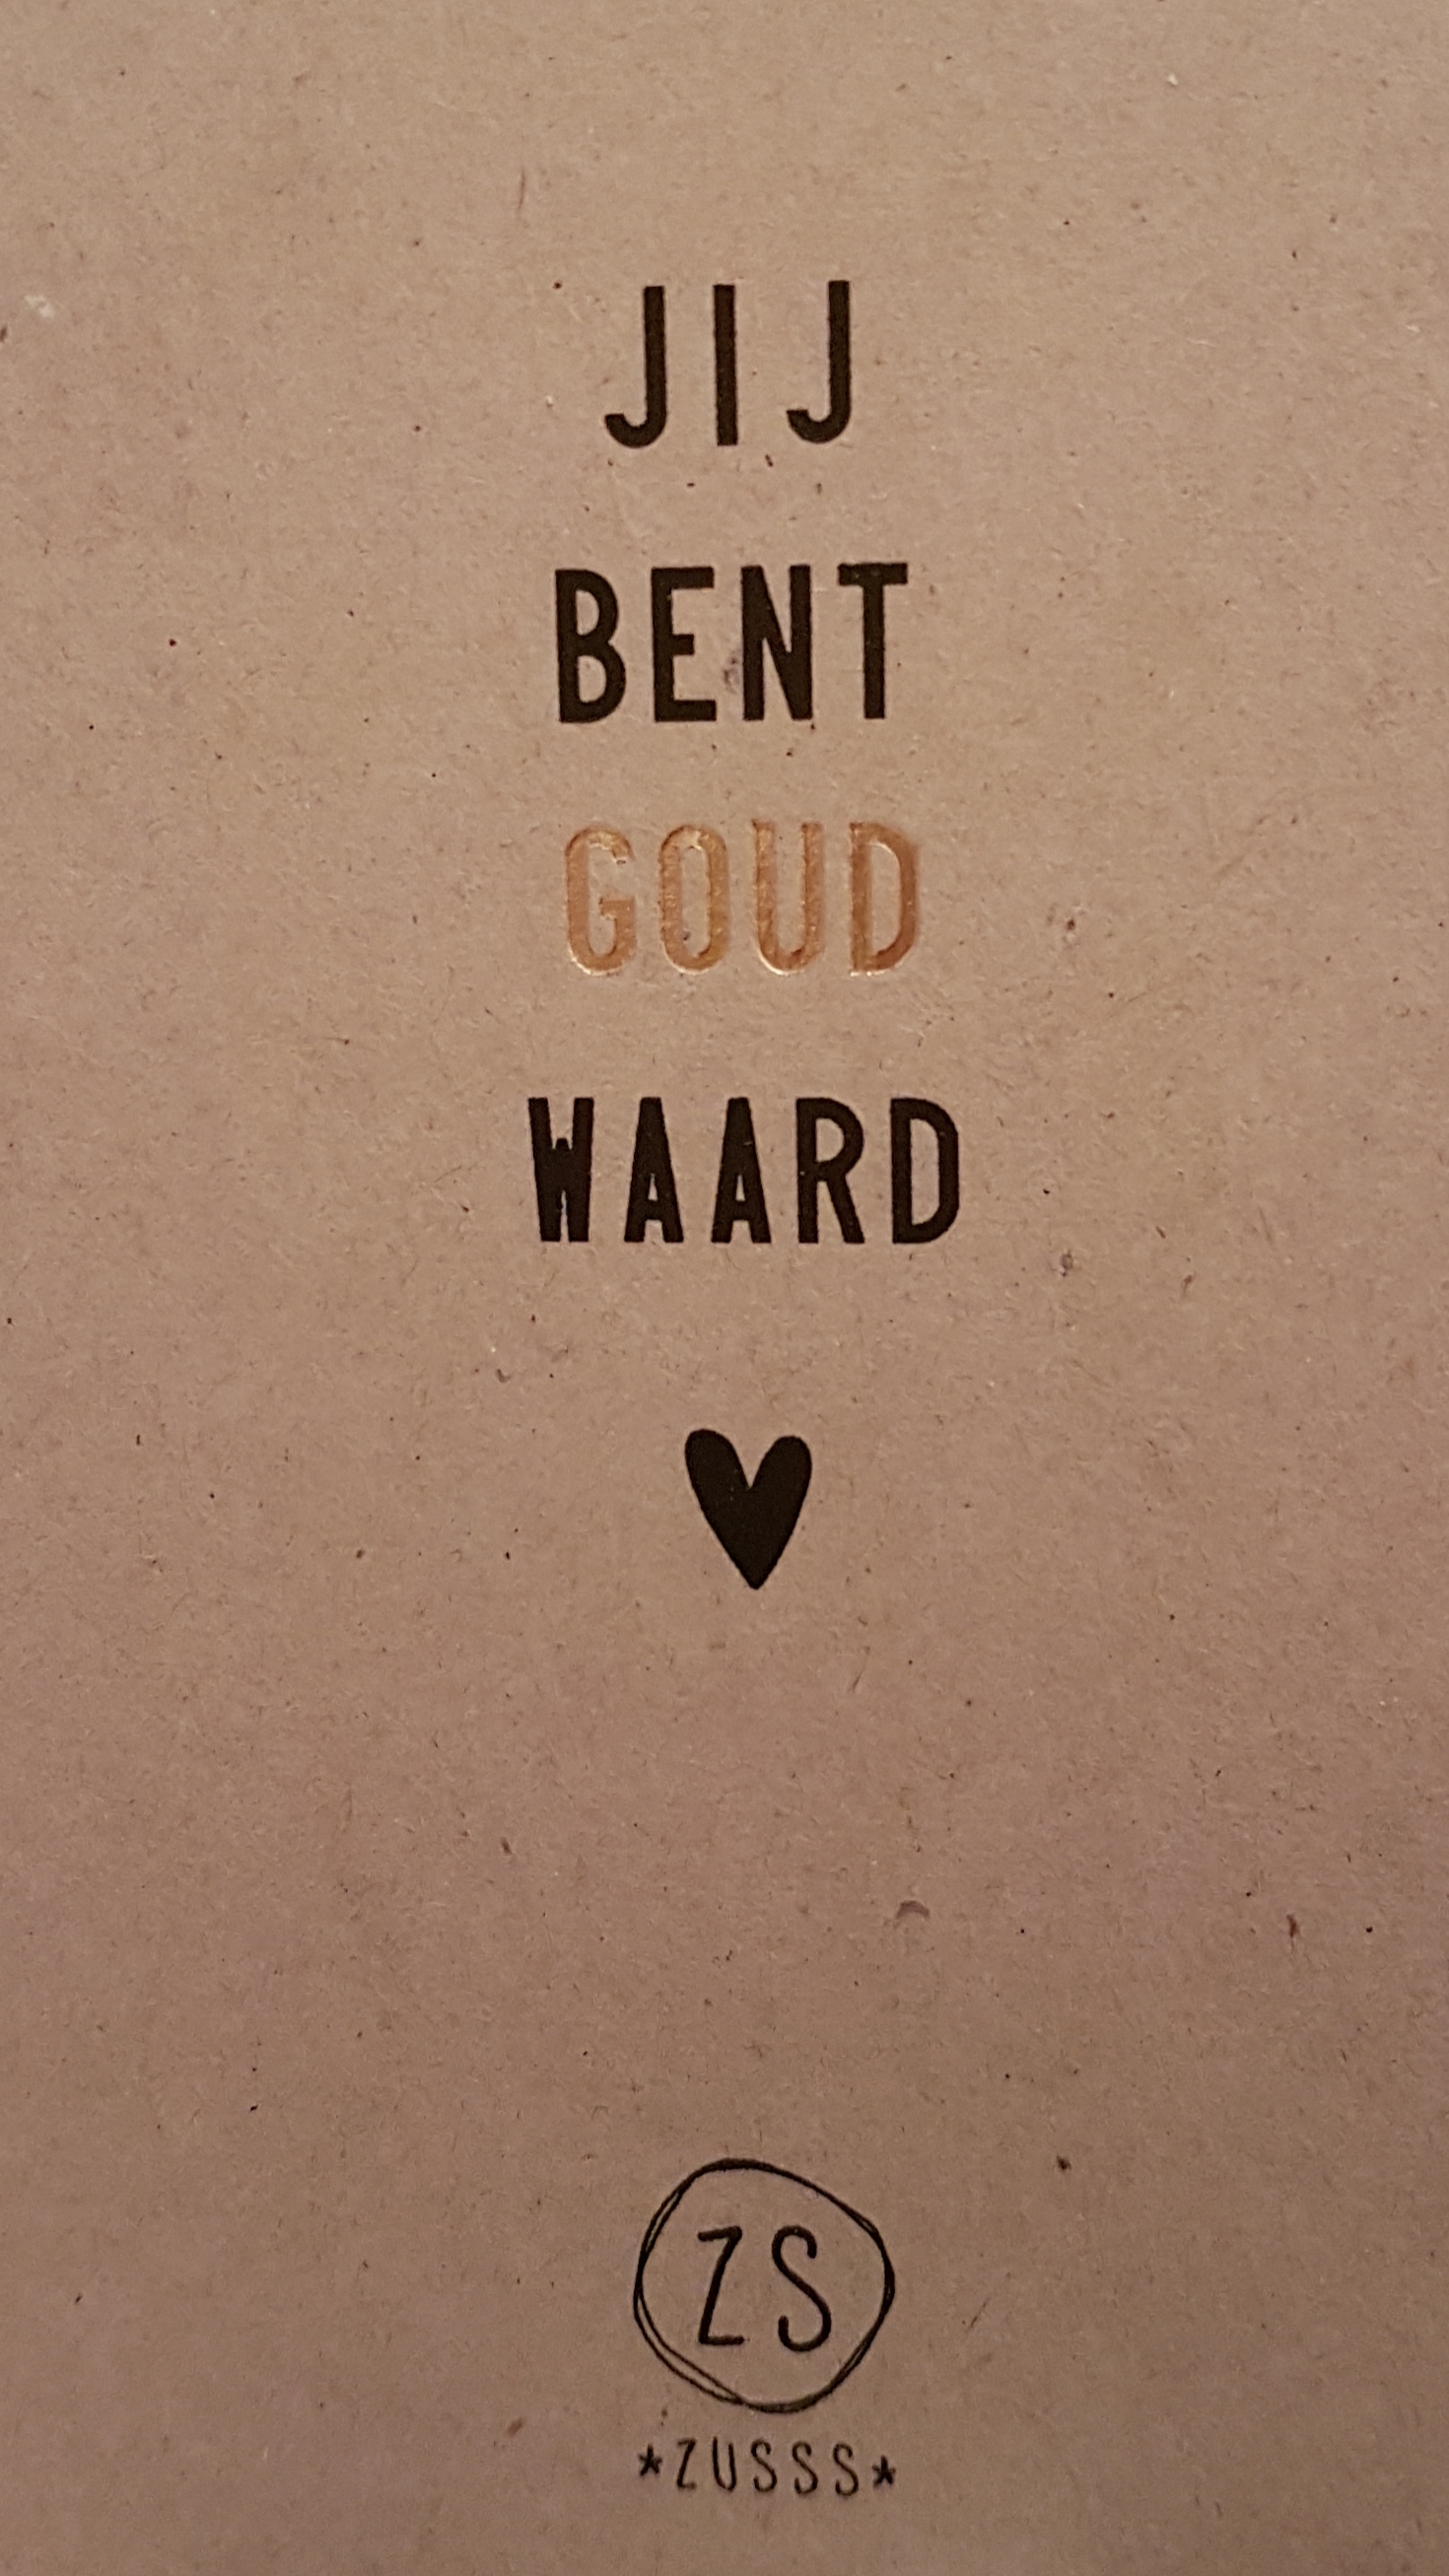 JIJ
BENT
GOUD
WAARD
ZS
*ZUSSS*